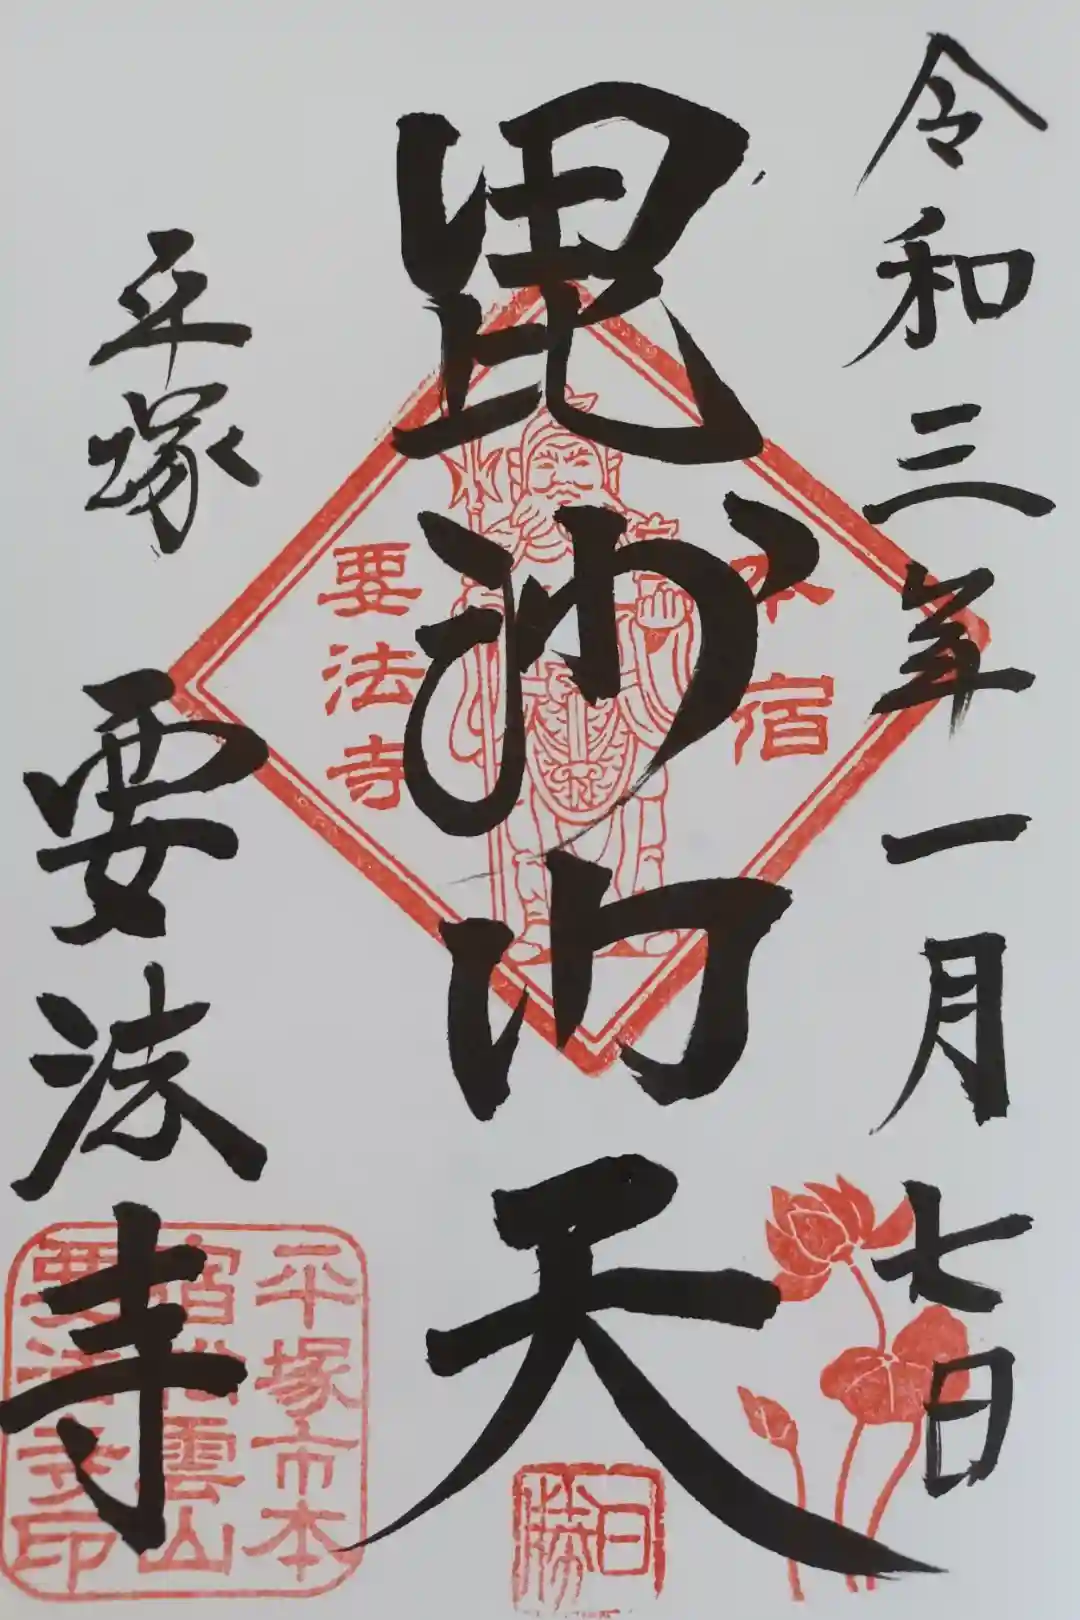 令和三年一月七日
毘沙門天
平塚 要法寺
本宿
要法寺
平塚市本
宿松雲山
要法寺印
日